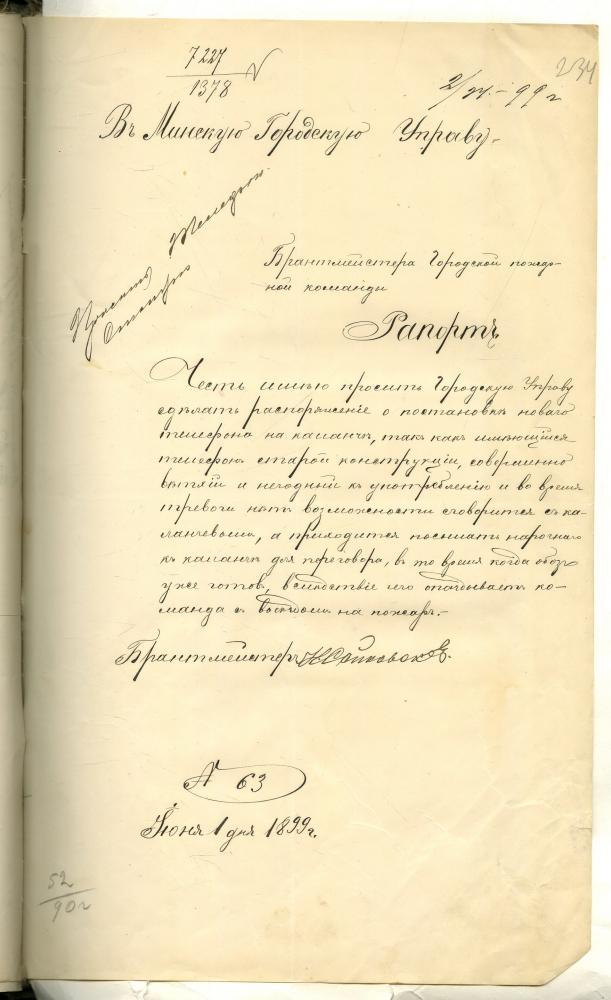 7227
1378
234
2/VI – 99 г
Въ Минскую Городскую Управу.
Брантмейстера Городской пожар-
ной команды
Рапортъ
Честь имѣю просить Городскую Управу
сдѣлать распоряженіе о постановкѣ новаго
телефона на каланчѣ, такъ какъ имѣющійся
телефонъ старой конструкціи, совершенно
ветхій и негодный къ употребленію и во время
тревоги нѣтъ возможности сговорится съ ка-
ланчевымъ, а приходится посылать нарочнаго
къ каланчѣ для переговора, въ то время когда обозъ
уже готовъ, вслѣдствіе чего опаздываетъ ко-
манда съ выѣздомъ на пожаръ.–
Брантмейстеръ
№ 63
Іюня 1 дня 1899 г.
52
90 г